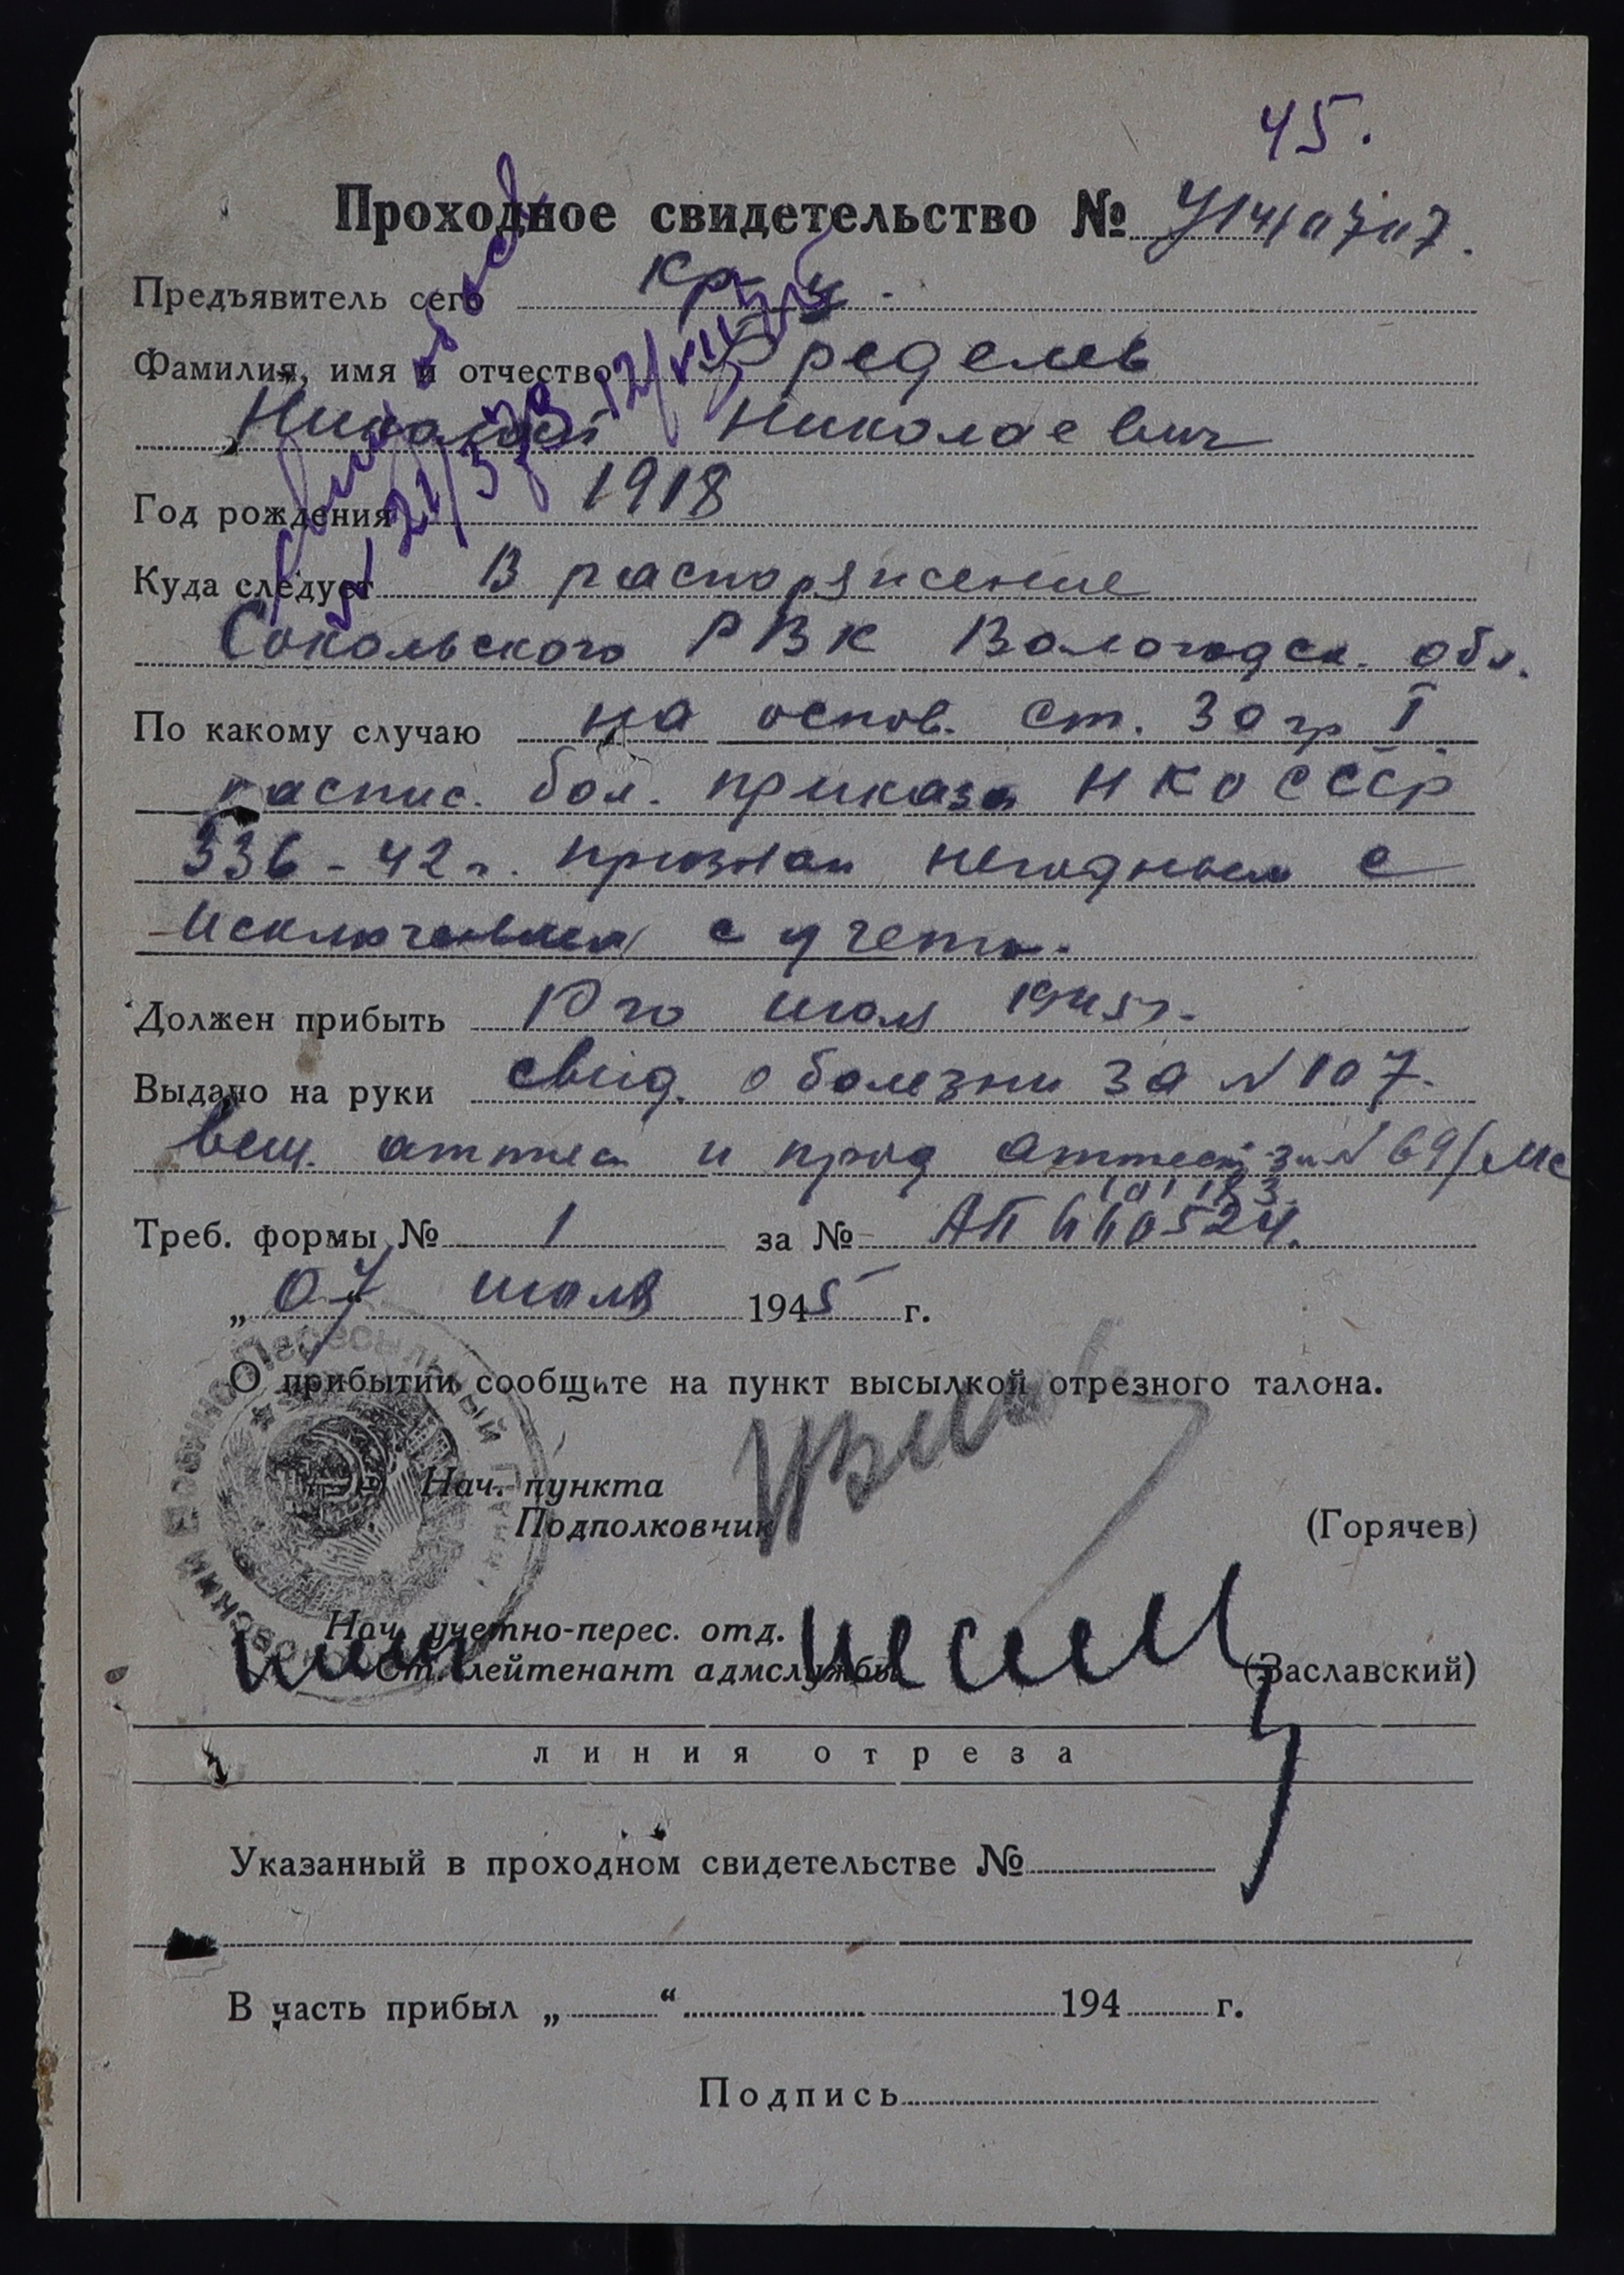 45.
Проходное свидетельство № У14/0707.
Предъявитель сего кр-ц.
Фамилия, имя и отчество Фределев
Николай Николаевич
Год рождения 1918
Куда следует В распоряжение
Сокольского РВК Вологодск. обл.
По какому случаю на основ. ст. 30 гр I
распис. бол. приказа НКО СССР
336-42 г. признан негодным с
исключением с учета.
Должен прибыть 10 го июля 1945 г.
Выдано на руки свид. о болезни за № 107.
вещ. аттест и прод аттест за № 69/
101183.
Треб. формы № 1 за № АП 660524.
„07“ июля 1945 г.
О прибытии сообщите на пункт высылкой отрезного талона.
Военно-Пересыльный
Нач. пункта
Подполковник (Горячев)
Нач. учетно-перес. отд.
Ст. лейтенант адмслужбы (Заславский)
линия отреза
Указанный в проходном свидетельстве №
В часть прибыл „ “ 194 г.
Подпись